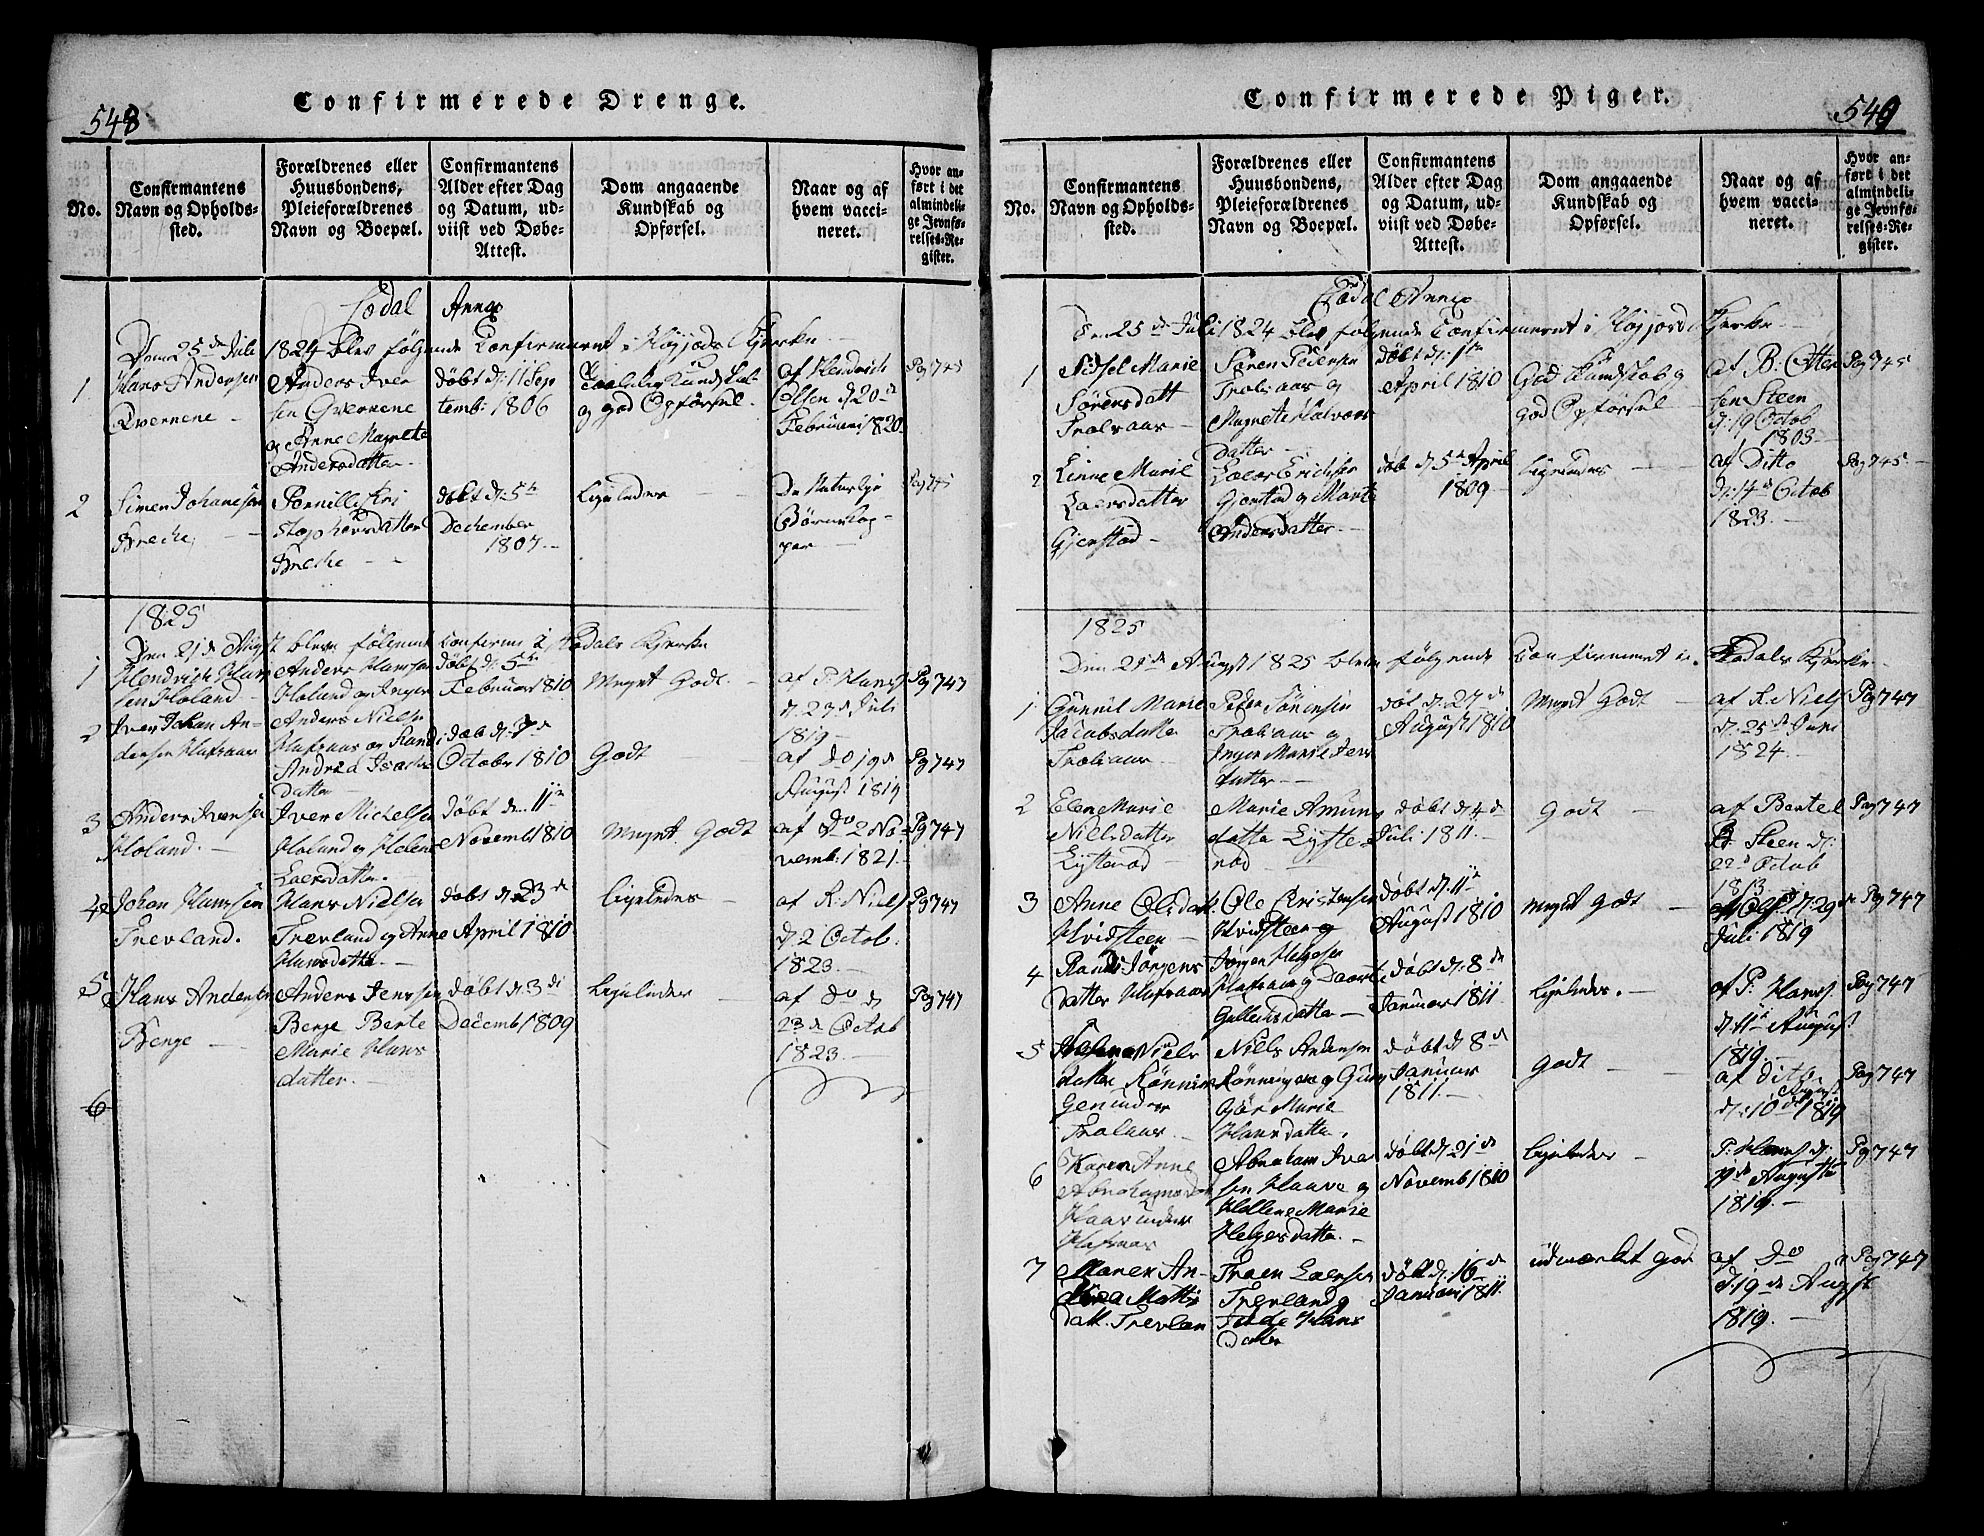 548
Confirmerede Drenge.
No.
Confirmantens Navn og Opholds-sted.
Forældrenes eller Huusbondens, Pleieforældrenes Navn og Boepæl.
Confirmantens Alder efter Dag og Datum, ud-viist ved Døbe-Attest.
Dom angaaende Kundskab og Opførsel.
Naar og af hvem vacci-neret.
Hvor an-ført i det almindeli-ge Jevnfø-relses-Re-gister.
Fodal Annex
Den 25de Juli 1824 blev følgende Confirmeret i Høyjords Kjerke
1
Hans Andersen
Qvernene
Anders Iver
sen Qvernene
og Anne Magrete
Andersdatter
døbt d. 11 Sep
temb: 1806
Taalelig Kundskab
og god Opførsel
af Hendrich
Olsen d 20de
Februari 1820
Pag 745
2
Simen Johanesen
Breche
Pernille
Breche
døbt d: 5te
December
1807
Ligeledes
De Naturlige
Børnekop-
per
Pag 745
1825
Den 21de Augst bleve følgende confirme i Fodals Kjerke
1
Hendrich Han
sen Holand
Anders Hansen
Holand og Inger
døbt d. 5te
Februar 1810
Meget Godt
af P. Hans
d. 23de Juli
1819
Pag 747
2
Iver Johan An-
dersen Hafsaas
Anders Niels
Hafsaas og Randi
Andrea Isachs
datter
døb d: 7de
October 1810
Godt
af do 19de
August 1819
Pag 747
3
Anders Iversen
Holand
Iver Michelse
Holand og Helene
Laersdatter
døbt d. 11te
Novemb 1810
Meget Godt
af do 2 No-
vemb: 1821
Pg 747
4
Johan Hansen
Trevland.
Hans Nielsen
Trevland og Anne
Hansdatte
døbt d. 23de
April 1810
Ligeledes
af R: Niels
d. 2 Octob.
1823
Pg 747
5
Hans Andersen
Berge
Anders Jensen
Berge Berte
Marie Hans
datter
døbt d. 3di
Decemb 1809
Ligeledes
af do d
23de Octob
1823
Pag 747
6
Confirmerede Piger.
549
No.
Confirmantens Navn og Opholds-sted.
Forældrenes eller Huusbondens, Pleieforældrenes Navn og Boepæl.
Confirmantens Alder efter Dag og Datum, ud-viist ved Døbe-Attest.
Dom angaaende Kundskab og Opførsel.
Naar og af hvem vacci-neret.
Hvor an-ført i det almindeli-ge Jevnfø-relses-Re-gister.
Fodal Annex
Den 25de Juli 1824 blev følgende Confirmeret i Høyjord Kjerke
1
Sidsel Marie
Sørensdatt
Trolsaas
Søren Pedersen
Trolsaas og
Magnete Halvors
datter
døbt d: 1ste
April 1810
God Kundskab og
god Opførsel
af B. Otter
sen Steen
d: 19 Octob
1808
Pag 745
2
Linne Marie
Laersdatter
Gjerstad
Laers Erichsen
Gjerstad og Marte
Andersdatter
døb d 5te April
1809
Ligeledes
af Ditto
d: 14de Octob
1823
Pag 745
1825
Den 21de Augst 1825 bleve følgende Confirmeret i Fodals Kjerke
1
Gunnil Marie
Jacobsdatte
Trolsaas
Peder Sørensen
Trolsaas og
Inger Marie Jens
datter
døb d. 27de
August 1810
Meget Godt
af R. Niels
d. 25de Juni
1824
Pag 747
2
Elen Marie
Nielsdatter
Lysterød
Marie Amuns
datte Lyste
rød
døbt d 4de
Juli 1811
Godt
af Bertel
Steen d:
22d Octob
1813
Pag 747
3
Anne Olsdat
Hvidsteen
Ole Cristensen
Hvidsteen og
døbt d. 11te
August 1810
Meget Godt
d. 29de
Juli 1819
Pag 747
4
Randi Jørgens
datter Hafsaas
Jørgen Helgesen
Hafsaas og Daarte
Gulleksdatter
døbt d. 8de
Januar 1811
Ligeledes
af P. Hans
d. 11te August
1819
Pag 747
5
Helene Niels
datter Rønnin
gen under
Trolsaas
Niels Andersen
Rønningen og Gun
Marie
Hansdatte
døbt d 8de
Januar
1811
Godt
af ditto
d: 10de August 1819
Pag 747
6
Karen Anne
Abrahamsda
Haas under
Hafsaas
Abraham Iver
sen Haave og
Hellene Marie
Helgesdatte
døbt d. 21de
Novemb 1810
Ligeledes
P: Hans d:
Auguste
1819
Pg 747
7
Maren An-
drea Matti
datt. Trevlan
Laersen
Trevland og
Hans
datter
døbt d. 16de
Januari 1811
udmærket god
af Do
d. 19de Augst
1819
Pag 747